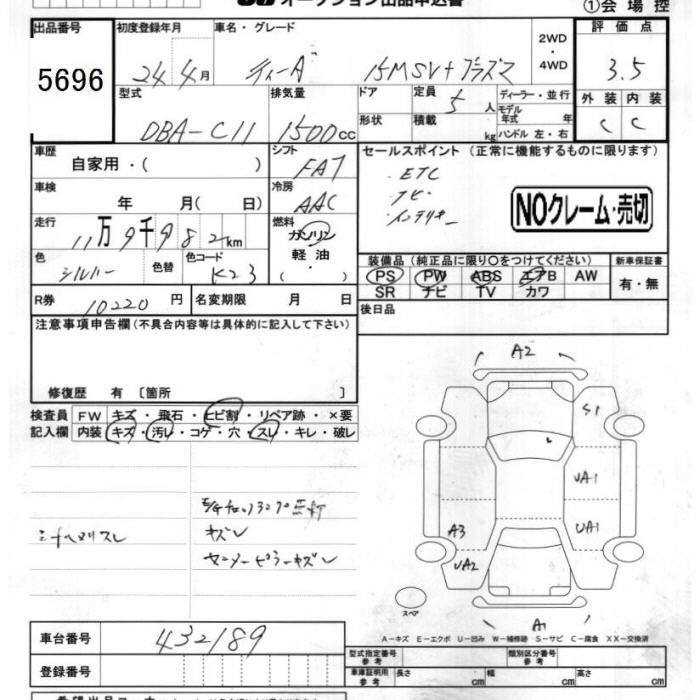 オークション出品申込書 ①会場控
出品番号 初度登録年月 車名・グレード 2WD・4WD 評価点
5696 24年4月 ティーダ 15MSV+プラズマ 3.5
型式 排気量 ドア 定員 5人 ディーラー・並行 外装 内装
DBA-C11 1500cc 形状 積載 kg モデル年式 年 ハンドル 左・右 C C
車歴 自家用・( ) シフト FAT セールスポイント (正常に機能するものに限ります)
車検 年 月( 日) 冷房 AAC
・ETC
・ナビ・
・インテリキー
NOクレーム・売切
走行 11万9千982km 燃料 ガソリン
軽油
・( )
色 シルバー 色替 色コード K23
装備品 (純正品に限り〇をつけてください) 新車保証書
PS PW ABS エアB AW 有・無
SR ナビ TV カワ
R券 10220円 名変期限 月 日 後日品
注意事項申告欄 (不具合内容等は具体的に記入して下さい)
修復歴 有 〔箇所 〕
検査員 FW キズ・飛石・ヒビ割・リペア跡・×要
記入欄 内装 キズ・汚レ・コゲ・穴・スレ・キレ・破レ
A2
S1
UA1
UA1
A3
UA2
A1
スペア
キズレ
A-キズ E-エクボ U-凹み W-補修跡 S-サビ C-腐食 XX-交換済
車台番号 432189
登録番号
型式指定番号 参考 類別区分番号 参考
車庫証明用 参考 長さ cm 幅 cm 高さ cm